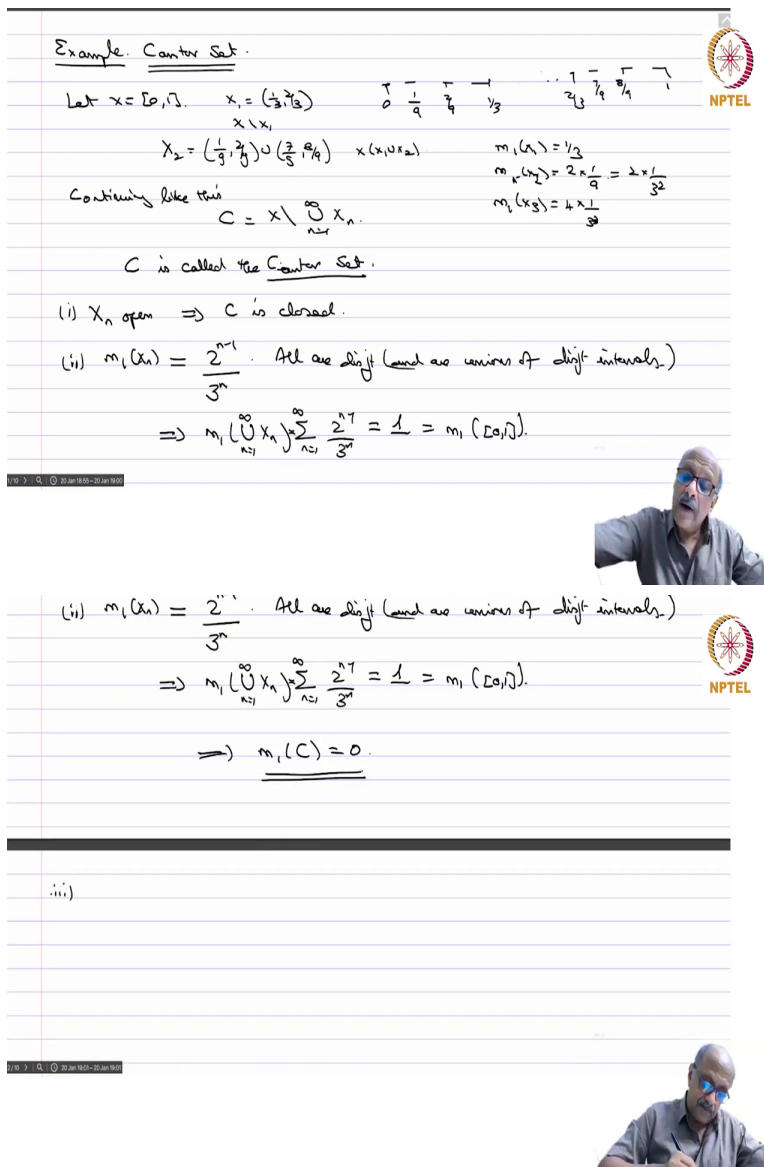 Example. Cantor Set.
Let X = [0,1]. X₁ = (1/3, 2/3)
X \ X₁
0 1/9 2/9 1/3 2/3 7/9 8/9 1
NPTEL
X₂ = (1/9, 2/9) ∪ (7/9, 8/9) X\(X₁∪X₂)
m₁(X₁) = 1/3
m₁(X₂) = 2×1/9 = 2×1/3²
m₁(X₃) = 4×1/3³
Continuing like this
C = X \ ∪_{n=1}^∞ Xₙ.
C is called the Cantor Set.
(i) Xₙ open ⇒ C is closed.
(ii) m₁(Xₙ) = 2ⁿ⁻¹/3ⁿ. All are disjt (and are unions of disjt intervals.)
⇒ m₁(∪_{n=1}^∞ Xₙ) = Σ_{n=1}^∞ 2ⁿ⁻¹/3ⁿ = 1 = m₁([0,1]).
1/10 20 Jan 18:55 – 20 Jan 19:00
(ii) m₁(Xₙ) = 2ⁿ⁻¹/3ⁿ. All are disjt (and are unions of disjt intervals.)
NPTEL
⇒ m₁(∪_{n=1}^∞ Xₙ) = Σ_{n=1}^∞ 2ⁿ⁻¹/3ⁿ = 1 = m₁([0,1]).
⇒ m₁(C) = 0.
iii)
2/10 20 Jan 19:01 – 20 Jan 19:01